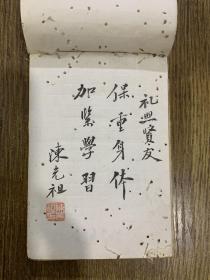 礼照賢友
保重身体
加紧學習
陳光祖